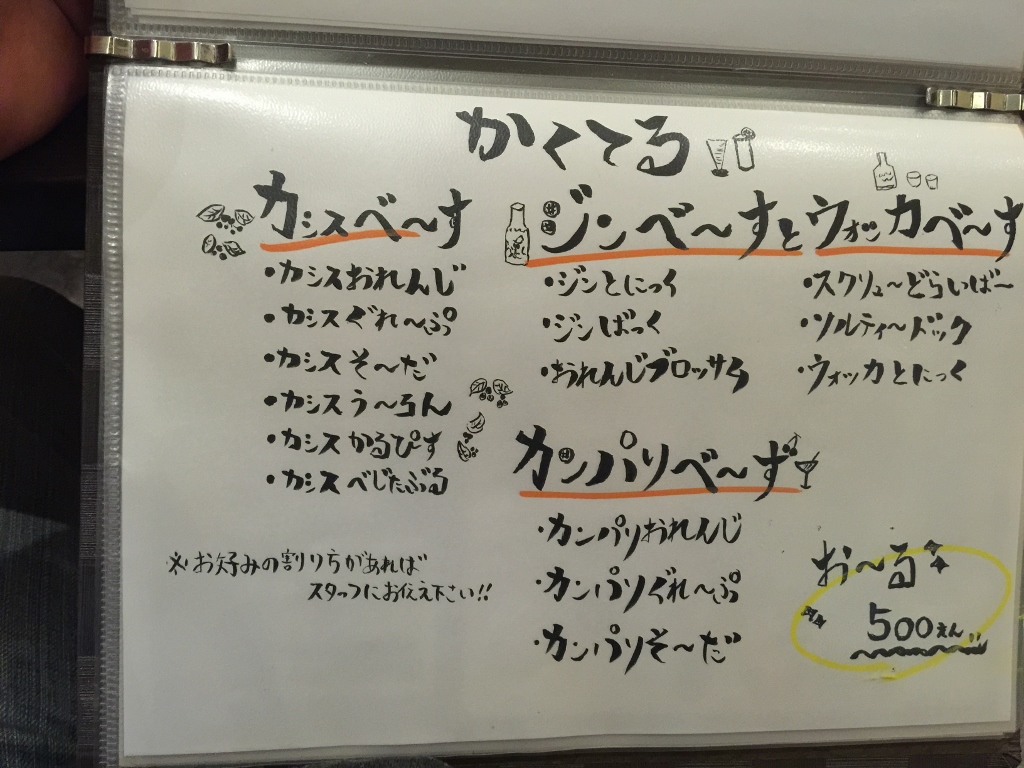 かくてる
カシスベ〜す
・カシスおれんじ
・カシスぐれ〜ぷ
・カシスそ〜だ
・カシスう〜ろん
・カシスかるぴす
・カシスべじたぶる
※お好みの割り方があれば
スタッフにお伝え下さい!!
ジンベ〜すとウォッカベ〜す
・ジンとにっく
・ジンばっく
・おれんじブロッサム
・スクリュ〜どらいば〜
・ソルティ〜ドック
・ウォッカとにっく
カンパリベ〜ず
・カンパリおれんじ
・カンパリぐれ〜ぷ
・カンパリそ〜だ
お〜る
500えん